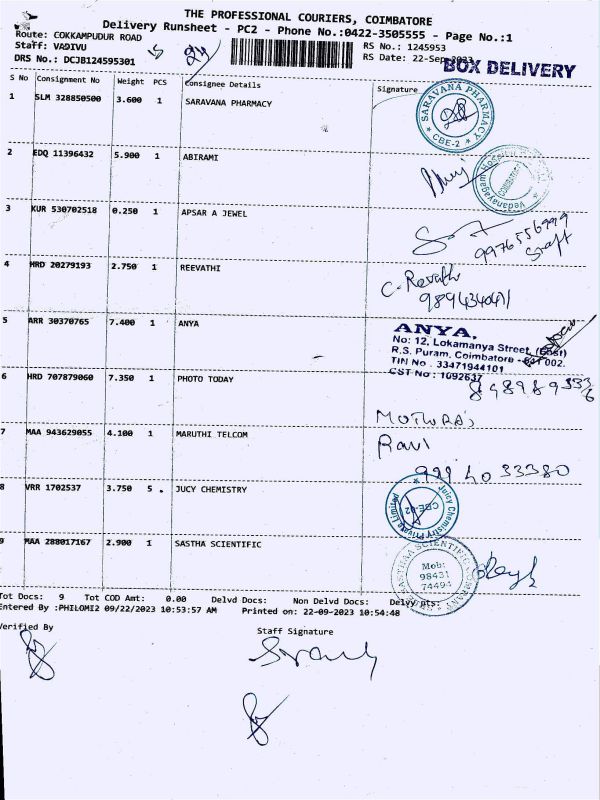 THE PROFESSIONAL COURIERS, COIMBATORE
Delivery Runsheet - PC2 - Phone No.:0422-3505555 - Page No.:1
Route: COKKAMPUDUR ROAD
Staff: VADIVU
DRS No.: DCJB124595301
RS No.: 1245953
RS Date: 22-Sep-2023
BOX DELIVERY
S No Consignment No Weight PCS Consignee Details Signature
1 SLM 328850500 3.600 1 SARAVANA PHARMACY
SARAVANA PHARMACY
* CBE-2 *
2 EDQ 11396432 5.900 1 ABIRAMI
Vedanayagam Hospital
COIMBATORE
3 KUR 530702518 0.250 1 APSAR A JEWEL
9976556999
4 HRD 20279193 2.750 1 REEVATHI
C. Revathi
5 ARR 30370765 7.400 1 ANYA
ANYA.
No: 12, Lokamanya Street, (East)
R.S. Puram, Coimbatore - 641 002.
TIN No : 33471944101
CST No : 1092637
6 HRD 707879060 7.350 1 PHOTO TODAY
7 MAA 943629055 4.100 1 MARUTHI TELCOM
Ravi
999 40 33380
8 VRR 1702537 3.750 5 . JUCY CHEMISTRY
Juicy Chemistry Private Limited
CBE-02
9 MAA 288017167 2.900 1 SASTHA SCIENTIFIC
Mob:
98431
74494
Tot Docs: 9 Tot COD Amt: 0.00 Delvd Docs: Non Delvd Docs: Delvy pts:
Entered By :PHILOMI2 09/22/2023 10:53:57 AM Printed on: 22-09-2023 10:54:48
Verified By Staff Signature